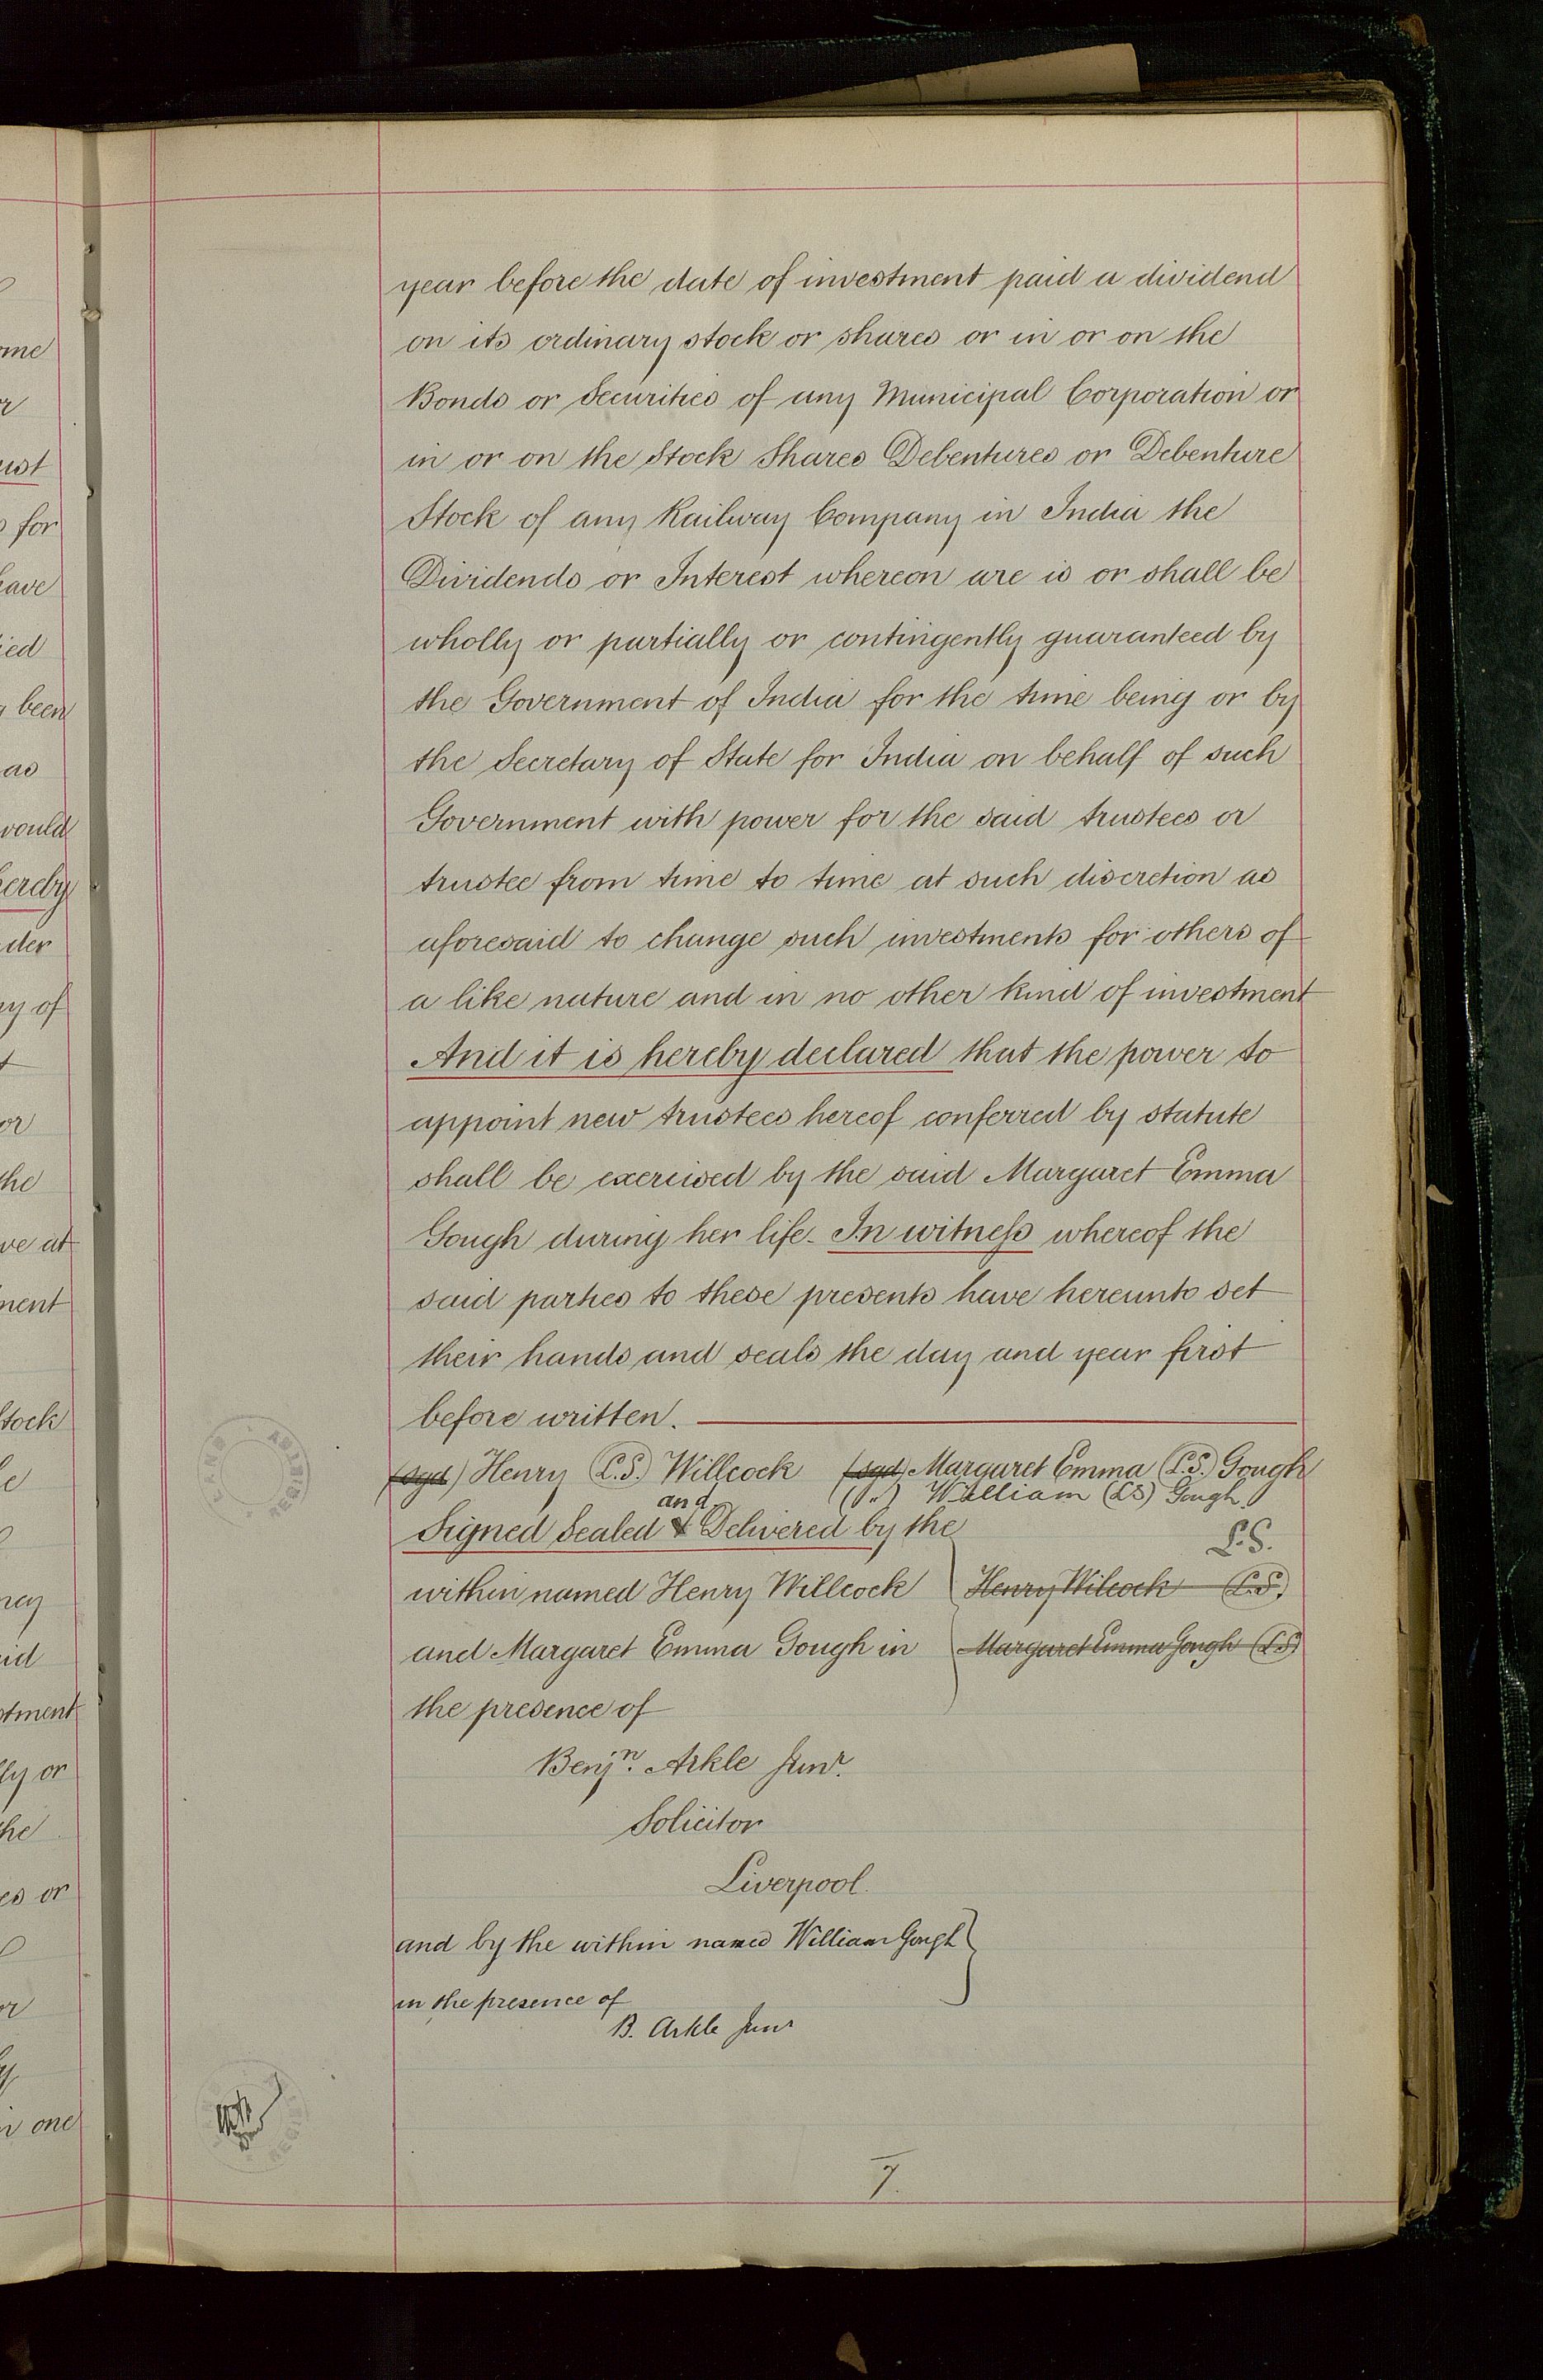 year before the date of investment paid a dividend
on its ordinary stock or shares or in or on the
Bonds or Securities of any Municipal Corporation or
in or on the Stock Shares Debentures or Debenture
Stock of any Railway Company in India the
Dividends or Interest whereon are is or shall be
wholly or partially or contingently guaranteed by
the Government of India for the time being or by
the Secretary of State for India on behalf of such
Government with power for the said trustees or
trustee from time to time at such discretion as
aforesaid to change such investments for others of
a like nature and in no other kind of investment
And it is hereby declared that the power to
appoint new trustees hereof conferred by statute
shall be exercised by the said Margaret Emma
Gough during her life. In witness whereof the
said parties to these presents have hereunto set
their hands and seals the day and year first
before written.
(sgd) Henry (L.S.) Willcock (sgd) Margaret Emma (L.S.) Gough
(") William (LS) Gough.
and
Signed Sealed & Delivered by the
L.S.
within named Henry Willcock Henry Wilcock (L.S.)
and Margaret Emma Gough in Margaret Emma Gough (L.S)
the presence of
Benjn. Arkle Junr.
Solicitor
Liverpool.
and by the within named William Gough
in the presence of
B. Arkle Junr
7.
ome
or
ust
s for
have
ied
g been
as
would
hereby
der
ny of
t
or
the
ve at
ment
Stock
le
may
aid
stment
lly or
the
es or
or
by
in one